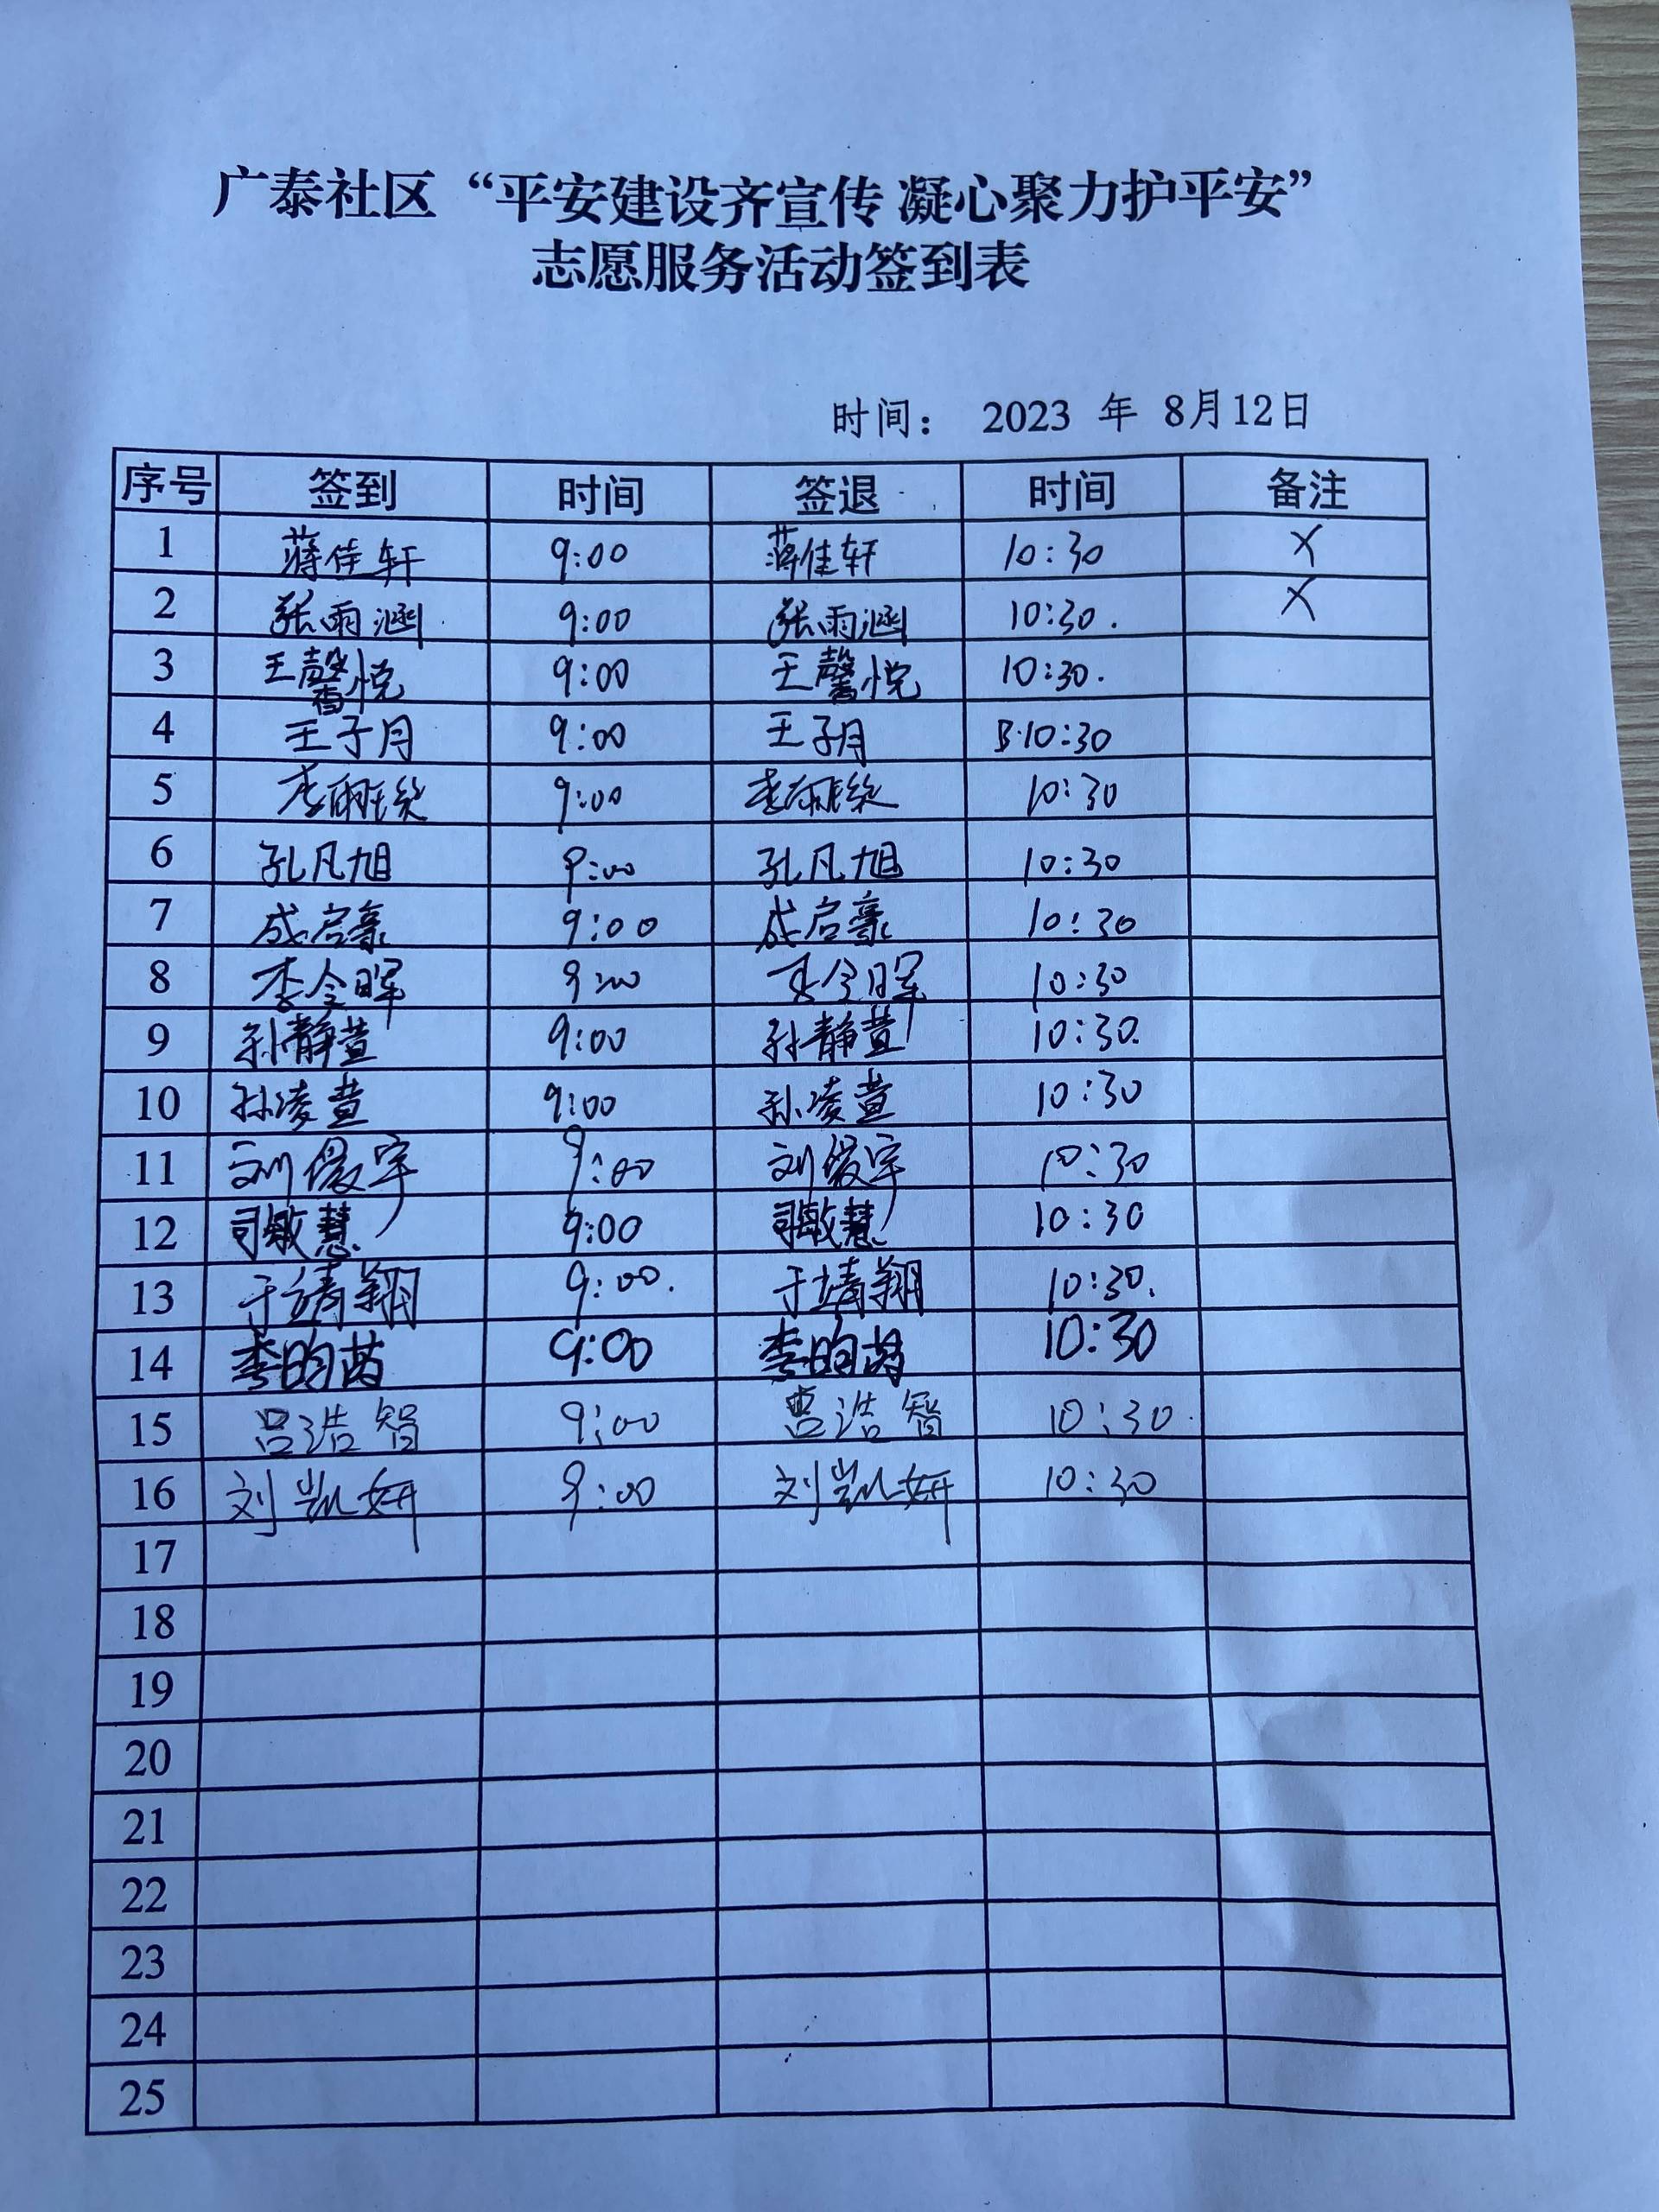 广泰社区“平安建设齐宣传 凝心聚力护平安”
志愿服务活动签到表
时间： 2023 年 8月12日
序号 签到 时间 签退 时间 备注
1 蒋佳轩 9:00 蒋佳轩 10:30 X
2 张雨涵 9:00 张雨涵 10:30. X
3 王馨悦 9:00 王馨悦 10:30.
4 王子月 9:00 王子月 10:30
5 9:00 10:30
6 孔凡旭 9:00 孔凡旭 10:30
7 成启豪 9:00 成启豪 10:30
8 李令晖 9:00 李令晖 10:30
9 孙静萱 9:00 孙静萱 10:30.
10 孙凌萱 9:00 孙凌萱 10:30
11 9:00 10:30
12 司敏慧 9:00 司敏慧 10:30
13 于靖翔 9:00. 于靖翔 10:30.
14 李昀芮 9:00 李昀芮 10:30
15 吕浩智 9:00 吕浩智 10:30.
16 刘凯妍 9:00 刘凯妍 10:30
17
18
19
20
21
22
23
24
25